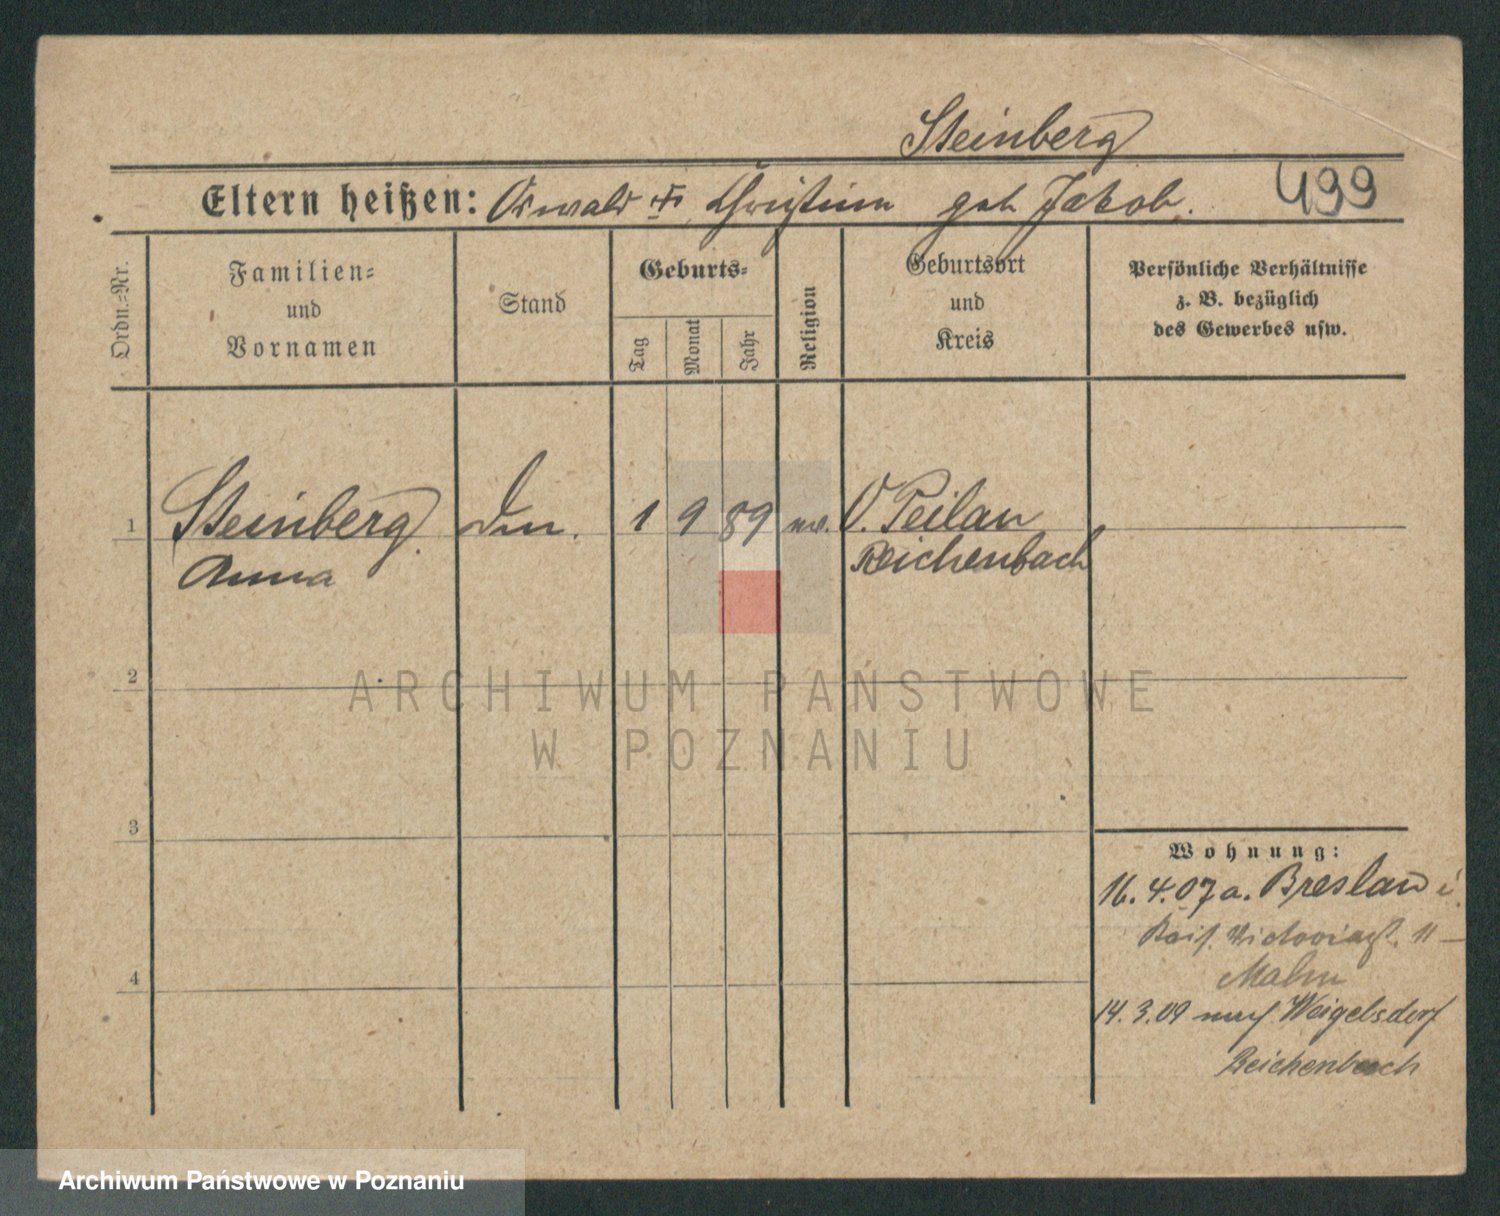 Steinberg
Eltern heißen: Oswald + Christine geb Jakob.
499
Ordn.-Nr.
Familien-
und
Vornamen
Stand
Geburts-
Tag
Monat
Jahr
Religion
Geburtsort
und
Kreis
Persönliche Verhältnisse
z. B. bezüglich
des Gewerbes usw.
1
Steinberg
1 9 89
O. Peilau
Anna
Reichenbach
2
ARCHIWUM PAŃSTWOWE
W POZNANIU
3
Wohnung:
16. 4. 07 a. Breslau i.
11
4
14. 3. 09 nach Weigelsdorf
Reichenbach
Archiwum Państwowe w Poznaniu